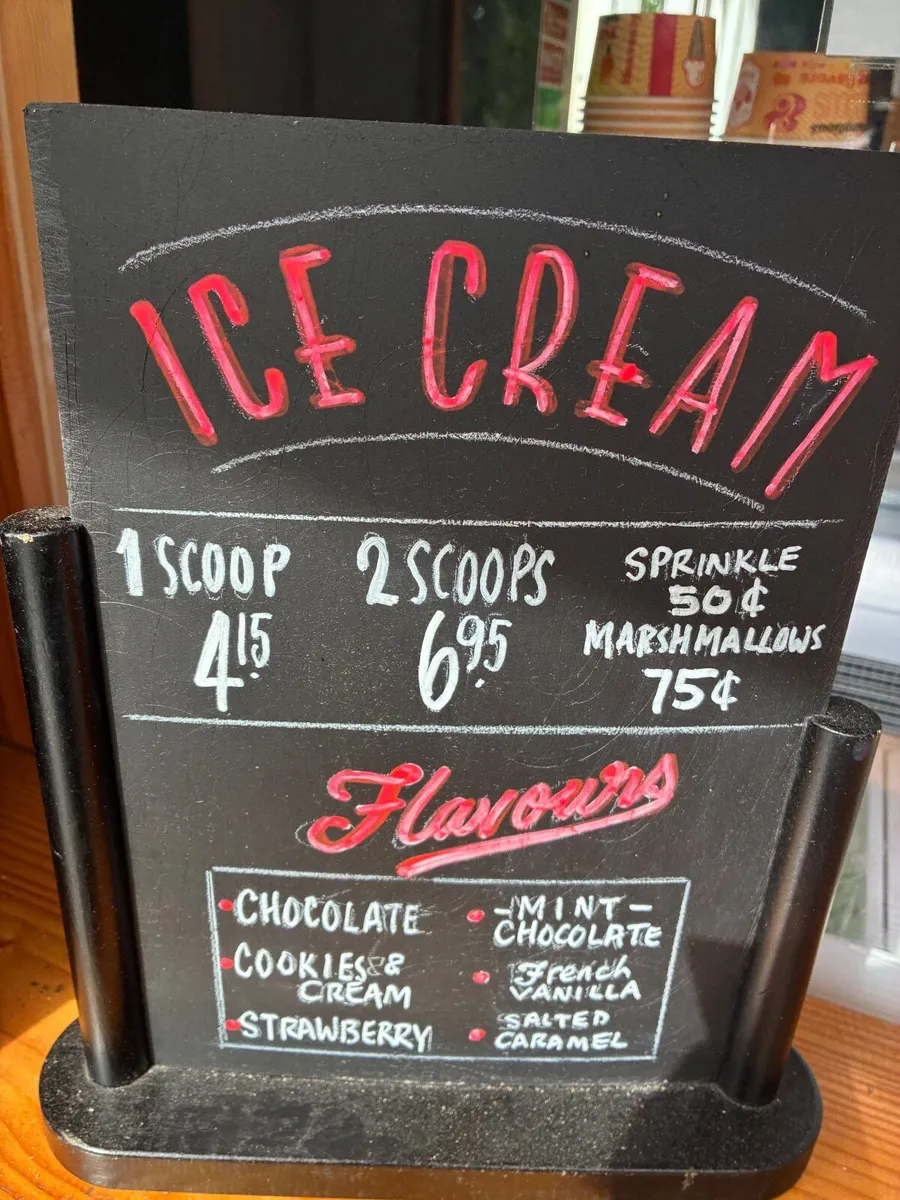 ICE CREAM
1 SCOOP
4.15
2 SCOOPS
6.95
SPRINKLE
50¢
MARSHMALLOWS
75¢
Flavours
• CHOCOLATE
• COOKIES &
CREAM
• STRAWBERRY
• -MINT-
CHOCOLATE
• French
VANILLA
• SALTED
CARAMEL